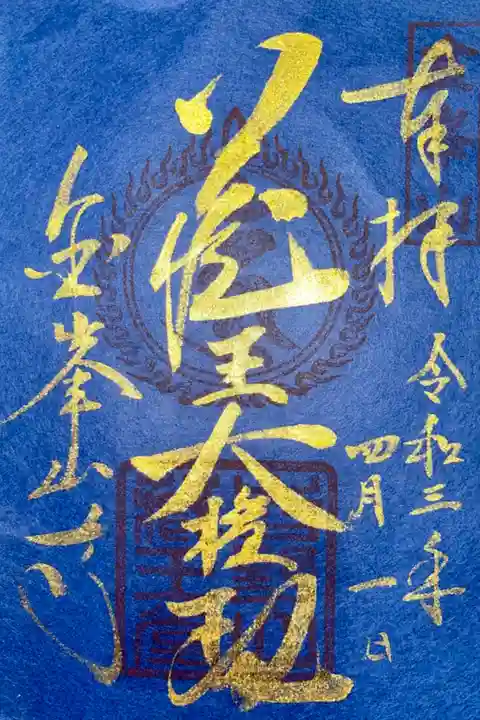 奉拝
令和三年
四月一日
蔵王大権現
金峯山寺